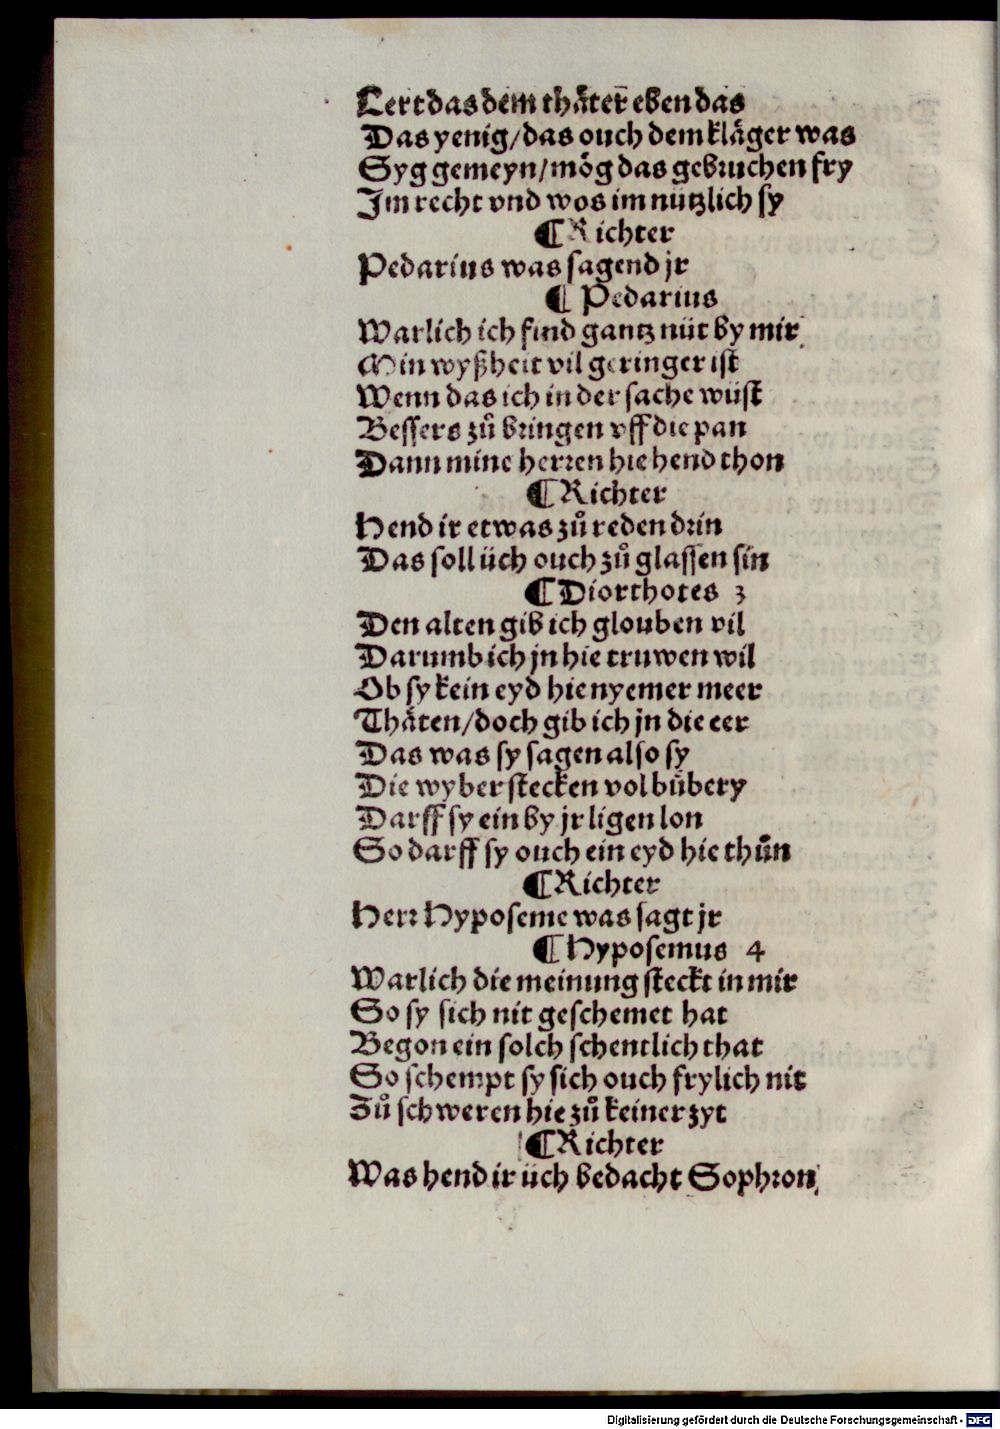 Lert das dem thåter eben das
Das yenig/das ouch dem kläger was
Syg gemeyn/mög das gebruchen fry
Im recht vnd wos im nützlich sy
¶ Richter
Pedarius was sagend jr
¶ Pedarius
Warlich ich find gantz nüt by mir
Min wyßheit vil geringer ist
Wenn das ich in der sache wüst
Bessers zů bringen vff die pan
Dann mine herren hie hend thon
¶ Richter
Hend ir etwas zů reden drin
Das soll üch ouch zů glassen sin
¶ Diorthotes 3
Den alten gib ich glouben vil
Darumb ich jn hie truwen wil
Ob sy kein eyd hie nyemer meer
Thäten/doch gib ich jn die eer
Das was sy sagen also sy
Die wyber stecken vol bübery
Darff sy ein by jr ligen lon
So darff sy ouch ein eyd hie thůn
¶ Richter
Herr Hyposeme was sagt jr
¶ Hyposemus 4
Warlich die meinung steckt in mir
So sy sich nit geschemet hat
Begon ein solch schentlich that
So schempt sy sich ouch frylich nit
Zů schweren hie zů keiner zyt
¶ Richter
Was hend ir üch bedacht Sophron
Digitalisierung gefördert durch die Deutsche Forschungsgemeinschaft - DFG